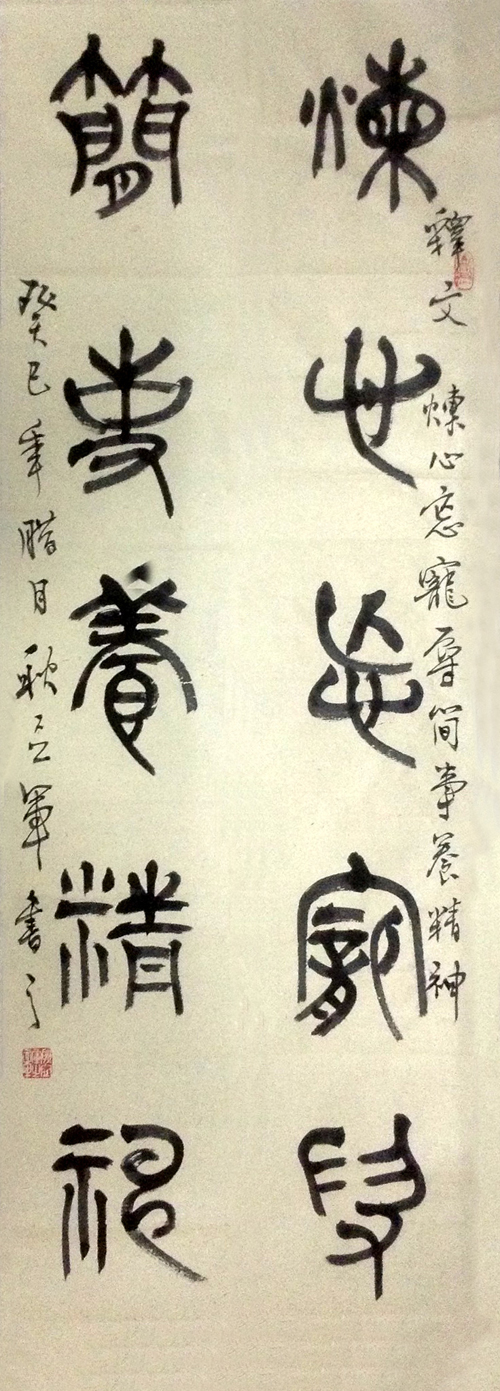 煉心忘寵辱
釋文 煉心忘寵辱简事养精神
簡事養精神
癸巳年腊月耿立軍書之